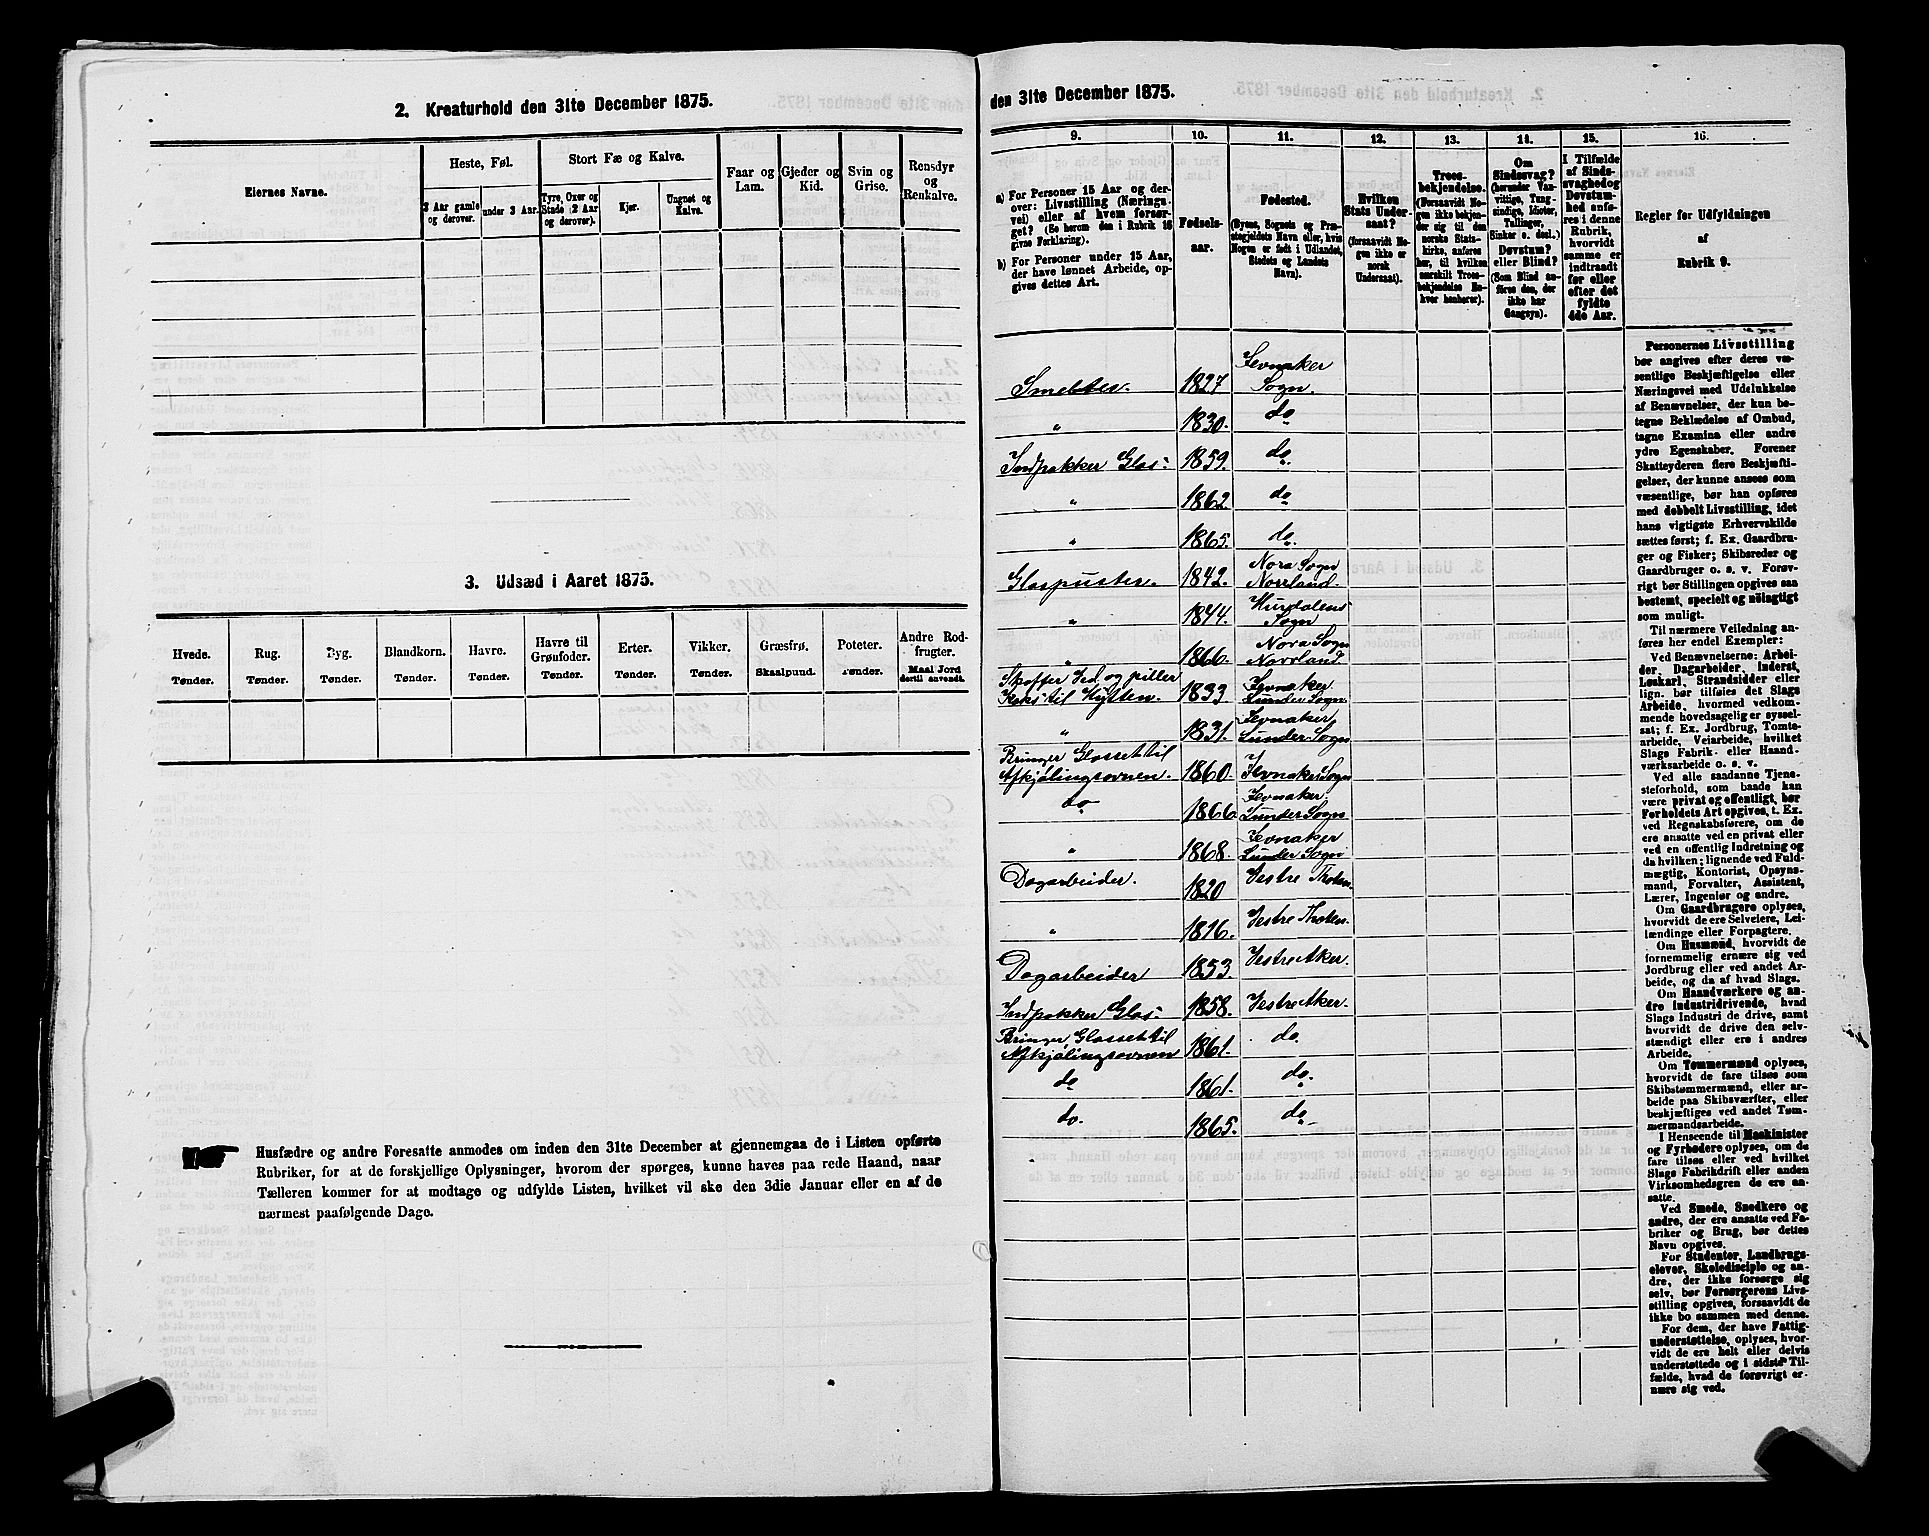 2. Kreaturhold den 31te December 1875.
Eiernes Navne.
Heste, Føl.
3 Aar gamle og derover.
under 3 Aar.
Stort Fæ og Kalve.
Tyre, Oxer og Stude (2 Aar og derover).
Kjør.
Ungnøt og Kalve.
Faar og Lam.
Gjeder og Kid.
Svin og Grise.
Rensdyr og Renkalve.
3. Udsæd i Aaret 1875.
Hvede. Tønder.
Rug. Tønder.
Byg. Tønder.
Blandkorn. Tønder.
Havre. Tønder.
Havre til Grønfoder. Tønder.
Erter. Tønder.
Vikker. Tønder.
Græsfrø. Skaalpund.
Poteter. Tønder.
Andre Rodfrugter. Maal Jord dertil anvendt.
Husfædre og andre Foresatte anmodes om inden den 31te December at gjennemgaa de i Listen opførte
Rubriker, for at de forskjellige Oplysninger, hvorom der spørges, kunne haves paa rede Haand, naar
Tælleren kommer for at modtage og udfylde Listen, hvilket vil ske den 3die Januar eller en af de
nærmest paafølgende Dage.
den 31te December 1875.
9.
a) For Personer 15 Aar og derover: Livsstilling (Næringsvei) eller af hvem forsørget? (Se herom den i Rubrik 16 givne Forklaring).
b) For Personer under 15 Aar, der have lønnet Arbeide, opgives dettes Art.
10.
Fødselsaar.
11.
Fødested.
(Byens, Sognets og Præstegjeldets Navn eller, hvis Nogen er født i Udlandet, Stedets og Landets Navn).
12.
Hvilken Stats Undersaat?
(forsaavidt Nogen ikke er norsk Undersaat).
13.
Troesbekjendelse.
(Forsaavidt Nogen ikke bekjender sig til den norske Statskirke, anføres her, til hvilken særskilt Troesbekjendelse Enhver henhører).
14.
Om Sindssvag? (herunder Vanvittige, Tungsindige, Idioter, Tullinger, Sinker o. desl.) Døvstum? eller Blind?
(Som Blind anføres den, der ikke har Gangsyn).
15.
I Tilfælde af Sindssvaghed og Døvstumhed anføres i denne Rubrik, hvorvidt samme er indtraadt før eller efter det fyldte 4de Aar.
16.
Regler for Udfyldningen
af
Rubrik 9.
Smelter. 1827 Jevnaker Sogn.
" 1830. do
Indpakker Glas: 1859. do.
" 1862. do
" 1865. do.
Glaspuster. 1842. Nora Sogn Norrland.
" 1844. Hurdalens Sogn
" 1866. Nora Sogn Norrland
Skaffer Ved og piller Koks til Hytten. 1833 Jevnaker Lunder Sogn.
" 1831. Jevnaker Lunder Sogn
Bringer Glasset til Afkjølingsovnen. 1860. Jevnaker Sogn
do 1866. Jevnaker Lunder Sogn
" 1868. Jevnaker Lunder Sogn
Dagarbeider. 1820 Vestre Thoten.
" 1816. Vestre Thoten.
Dagarbeider 1853 Vestre Aker.
Indpakker Glas: 1858. Vestre Aker.
Bringer Glasset til Afkjølingsovnen 1861. do.
do 1861. do.
do. 1865. do
Personernes Livsstilling
bør angives efter deres væ-
sentlige Beskjæftigelse eller
Næringsvei med Udelukkelse
af Benævnelser, der kun be-
tegne Beklædelse af Ombud,
tagne Examina eller andre
ydre Egenskaber. Forener
Skatteyderen flere Beskjæfti-
gelser, der kunne ansees som
væsentlige, bør han opføres
med dobbelt Livsstilling, idet
hans vigtigste Erhvervskilde
sættes først; f. Ex. Gaardbru-
ger og Fisker; Skibsreder og
Gaardbruger o. s. v. Forøv-
rigt bør Stillingen opgives saa
bestemt, specielt og nøiagtigt
som muligt.
Til nærmere Veiledning an-
føres her endel Exempler:
Ved Benævnelserne: Arbei-
der, Dagarbeider, Inderst,
Løskarl, Strandsidder eller
lign. bør tilføies det Slags
Arbeide, hvormed vedkom-
mende hovedsagelig er syssel-
sat; f. Ex. Jordbrug, Tomte-
arbeide, Veiarbeide, hvilket
Slags Fabrik- eller Haand-
værksarbeide o. s. v.
Ved alle saadanne Tjene-
steforhold, som baade kan
være privat og offentligt, bør
Forholdets Art opgives, t. Ex.
ved Regnskabsførere, om de
ere ansatte ved en privat eller
ved en offentlig Indretning og
da hvilken; lignende ved Fuld-
mægtig, Kontorist, Opsyns-
mand, Forvalter, Assistent,
Lærer, Ingeniør og andre.
Om Gaardbrugere oplyses,
hvorvidt de ere Selveiere, Lei-
lændinge eller Forpagtere.
Om Husmænd, hvorvidt de
fornemmelig ernære sig ved
Jordbrug eller ved andet Ar-
beide, og da af hvad Slags.
Om Haandværkere og an-
dre Industridrivende, hvad
Slags Industri de drive, samt
hvorvidt de drive den selv-
stændigt eller ere i andres
Arbeide.
Om Tømmermænd oplyses,
hvorvidt de fare tilsøs som
Skibstømmermænd, eller ar-
beide paa Skibsværfter, eller
beskjæftiges ved andet Tøm-
mermandsarbeide.
I Henseende til Maskinister
og Fyrbødere oplyses, om de
fare tilsøs eller ved hvilket
Slags Fabrikdrift eller anden
Virksomhedsgren de ere an-
satte.
Ved Smede, Snedkere og
andre, der ere ansatte ved Fa-
briker og Brug, bør dettes
Navn opgives.
For Studenter, Landbrugs-
elever, Skoledisciple og an-
dre, der ikke forsørge sig
selv, bør Forsørgerens Livs-
stilling opgives, forsaavidt de
ikke bo sammen med denne.
For dem, der have Fattig-
understøttelse, oplyses, hvor-
vidt de ere helt eller delvis
understøttede og i sidste Til-
fælde, hvad de forøvrigt er-
nære sig ved.